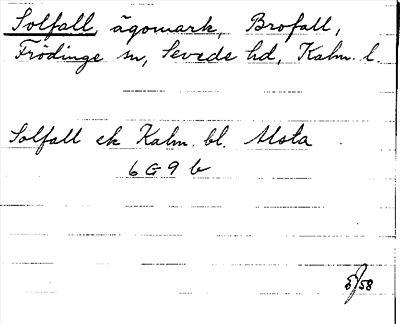 Solfall, ägomark, Brofall,
Frödinge sn, Sevede hd, Kalm. l.
Solfall ek Kalm. bl. Alsta
6 G 9 b
5/58